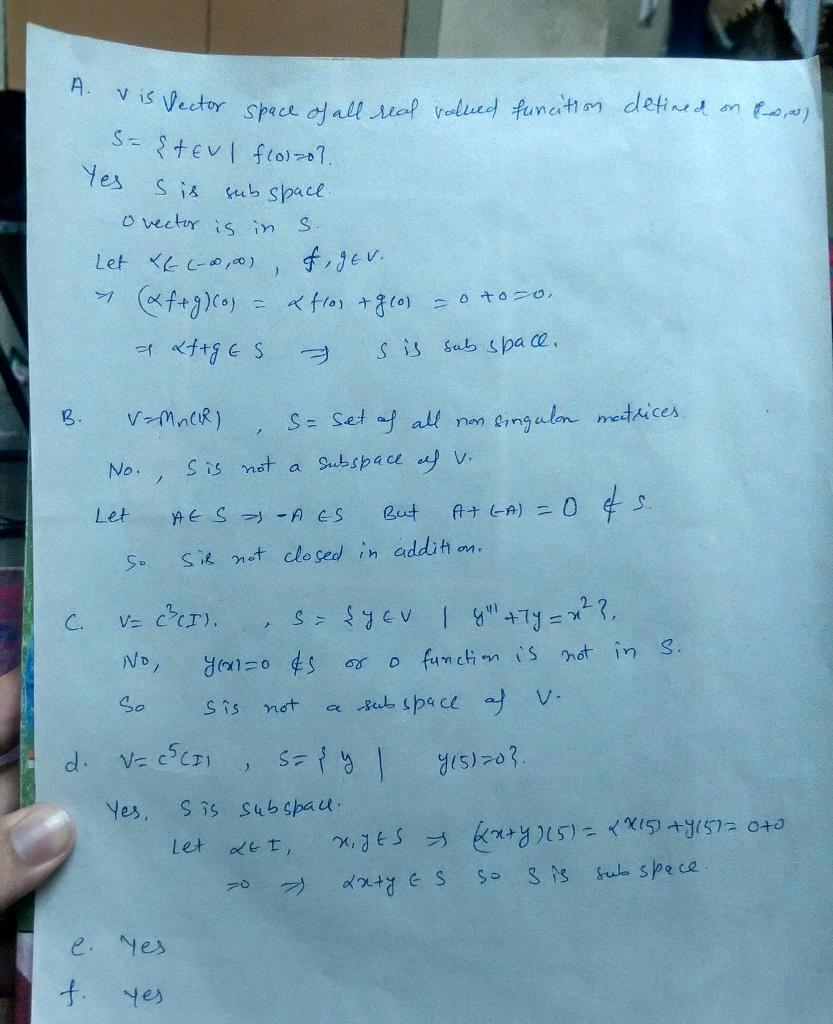 A. V is Vector space of all real valued funcition defined on (-∞,∞)
S = {f ∈ V | f(0)=0}.
Yes S is sub space.
0 vector is in S.
Let α ∈ (-∞,∞) , f,g ∈ V.
⇒ (αf+g)(0) = αf(0) + g(0) = 0+0=0,
⇒ αf+g ∈ S ⇒ S is sub space.
B. V=Mn(R) , S = Set of all non singular matrices.
No. , S is not a subspace of V.
Let A ∈ S ⇒ -A ∈ S But A+(-A) = 0 ∉ S.
So S is not closed in addition.
C. V= C³(I). , S = {y ∈ V | y'''+7y = x²}.
No, y(x)=0 ∉ S or 0 function is not in S.
So S is not a subspace of V.
d. V= C⁵(I) , S= {y | y(5)=0}.
Yes, S is subspace.
Let α ∈ I, x,y ∈ S ⇒ (αx+y)(5) = αx(5)+y(5)= 0+0
=0 ⇒ αx+y ∈ S so S is sub space.
e. Yes
f. Yes